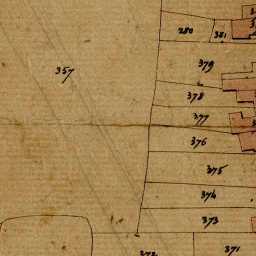 280
381
379
357
378
377
376
375
374
373
371